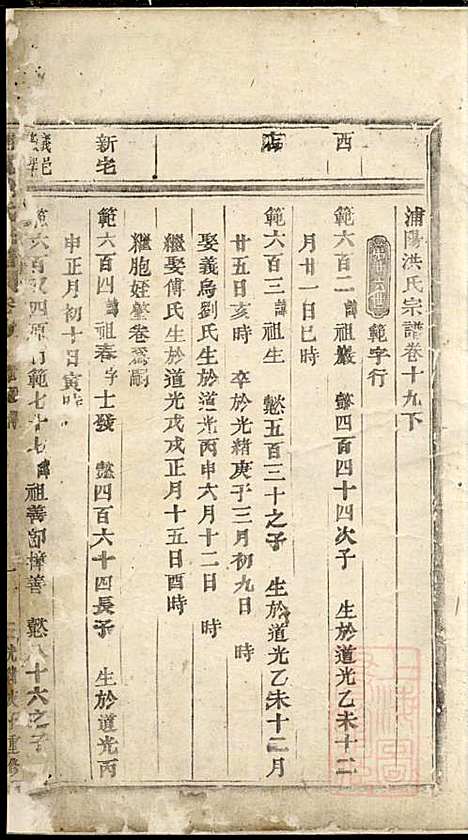 浦陽洪氏宗譜卷十九下
範字行
西店
範六百二諱祖嚴 懿四百四十四次子 生於道光乙未十二
月廿一日巳時
範六百三諱祖生 懿五百三十之子 生於道光乙未十二月
廿五日亥時 卒於光緒庚子三月初九日 時
娶義烏劉氏生於道光丙申六月十二日 時
繼娶傅氏生於道光戊戌正月十五日酉時
繼胞姪肇卷為嗣
新宅
範六百四諱祖春字士發 懿四百六十四長子 生於道光丙
申正月初十日寅時
義邑
六百 四 行範七十七諱祖善 善 懿八十六之子